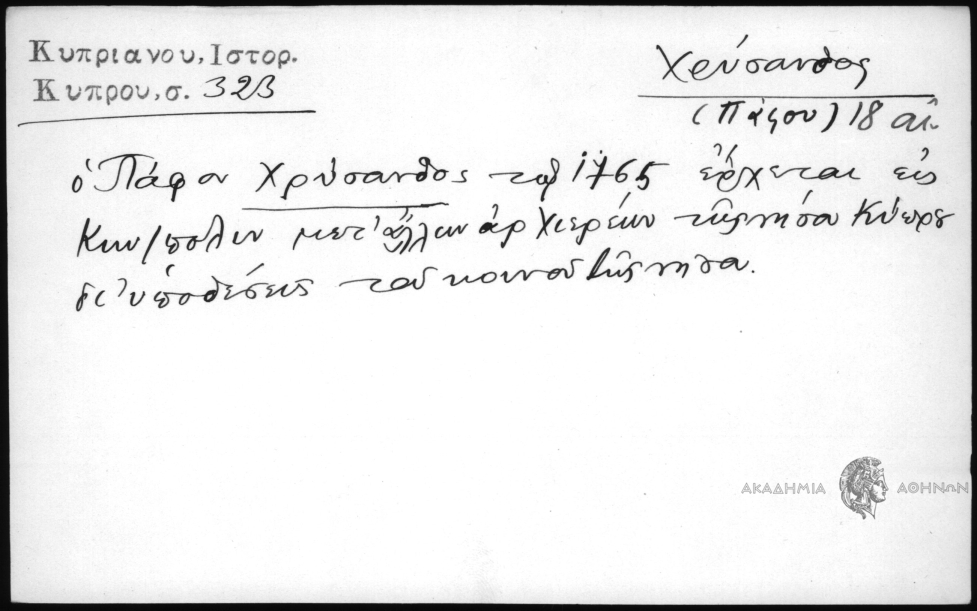 Κυπριανου, Ιστορ.
Κυπρου, σ. 323
Χρύσανθος
(Πάφου) 18 αἰ.
ὁ Πάφου Χρύσανθος τῷ 1765 ἔρχεται εἰς
Κων/πολιν μετ' ἄλλων ἀρχιερέων τῆς νήσου Κύπρου
δι' ὑποθέσεις τοῦ κοινοῦ τῆς νήσου.
ΑΚΑΔΗΜΙΑ ΑΘΗΝΩΝ